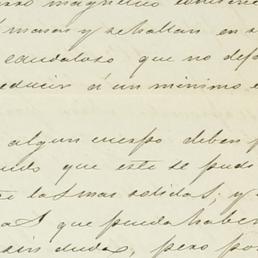 magnetico
masas y resaltan en
caudaloso que no
reducir á un minimo
algun cuerpo deben
que este se pudo
las mas solidas; y
que pueda haber
sin duda, pero por